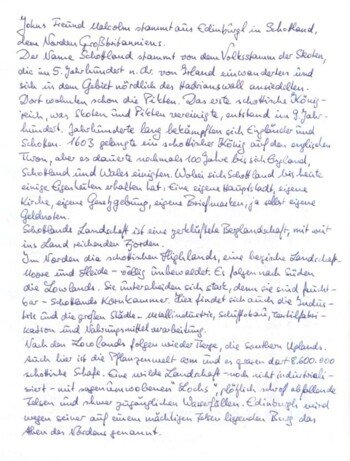 Johns Freund Malcolm stammt aus Edinburgh in Schottland,
dem Norden Großbritanniens.
Der Name Schottland stammt von dem Volksstamm der Skoten,
die im 5. Jahrhundert n. Chr. von Irland einwanderten und
sich in dem Gebiet nördlich des Hadrianswall ansiedelten.
Dort wohnten schon die Pikten. Das erste schottische König-
reich, was Skoten und Pikten vereinigte, entstand im 9. Jahr-
hundert. Jahrhunderte lang bekämpften sich Engländer und
Schotten. 1603 gelangte ein schottischer König auf den englischen
Thron, aber es dauerte nochmals 100 Jahre bis sich England,
Schottland und Wales einigten. Wobei sich Schottland bis heute
einige Eigenheiten erhalten hat: Eine eigene Hauptstadt, eigene
Kirche, eigene Gesetzgebung, eigene Briefmarken, ja selbst eigene
Geldnoten.
Schottlands Landschaft ist eine zerklüftete Berglandschaft, mit weit
ins Land reichenden Fjorden.
Im Norden die schottischen Highlands, eine bergische Landschaft
Moore und Heide - völlig unbewaldet. Es folgen nach Süden
die Lowlands. Sie unterscheiden sich stark, denn sie sind frucht-
bar - Schottlands Kornkammer. Hier findet sich auch die Indus-
trie und die großen Städte - Metallindustrie, Schiffsbau, Textilfabri-
kation und Nahrungsmittelverarbeitung.
Nach den Lowlands folgen wieder Berge, die Southern Uplands.
Auch hier ist die Pflanzenwelt arm und es grasen dort 8.600.000
schottische Schafe. Eine wilde Landschaft - noch nicht industriali-
siert - mit sagenumwobenen "Lochs", plötzlich schroff abfallende
Felsen und schwer zugänglichen Wasserfällen. Edinburgh wird
wegen seiner auf einem mächtigen Felsen liegenden Burg das
Athen des Nordens genannt.